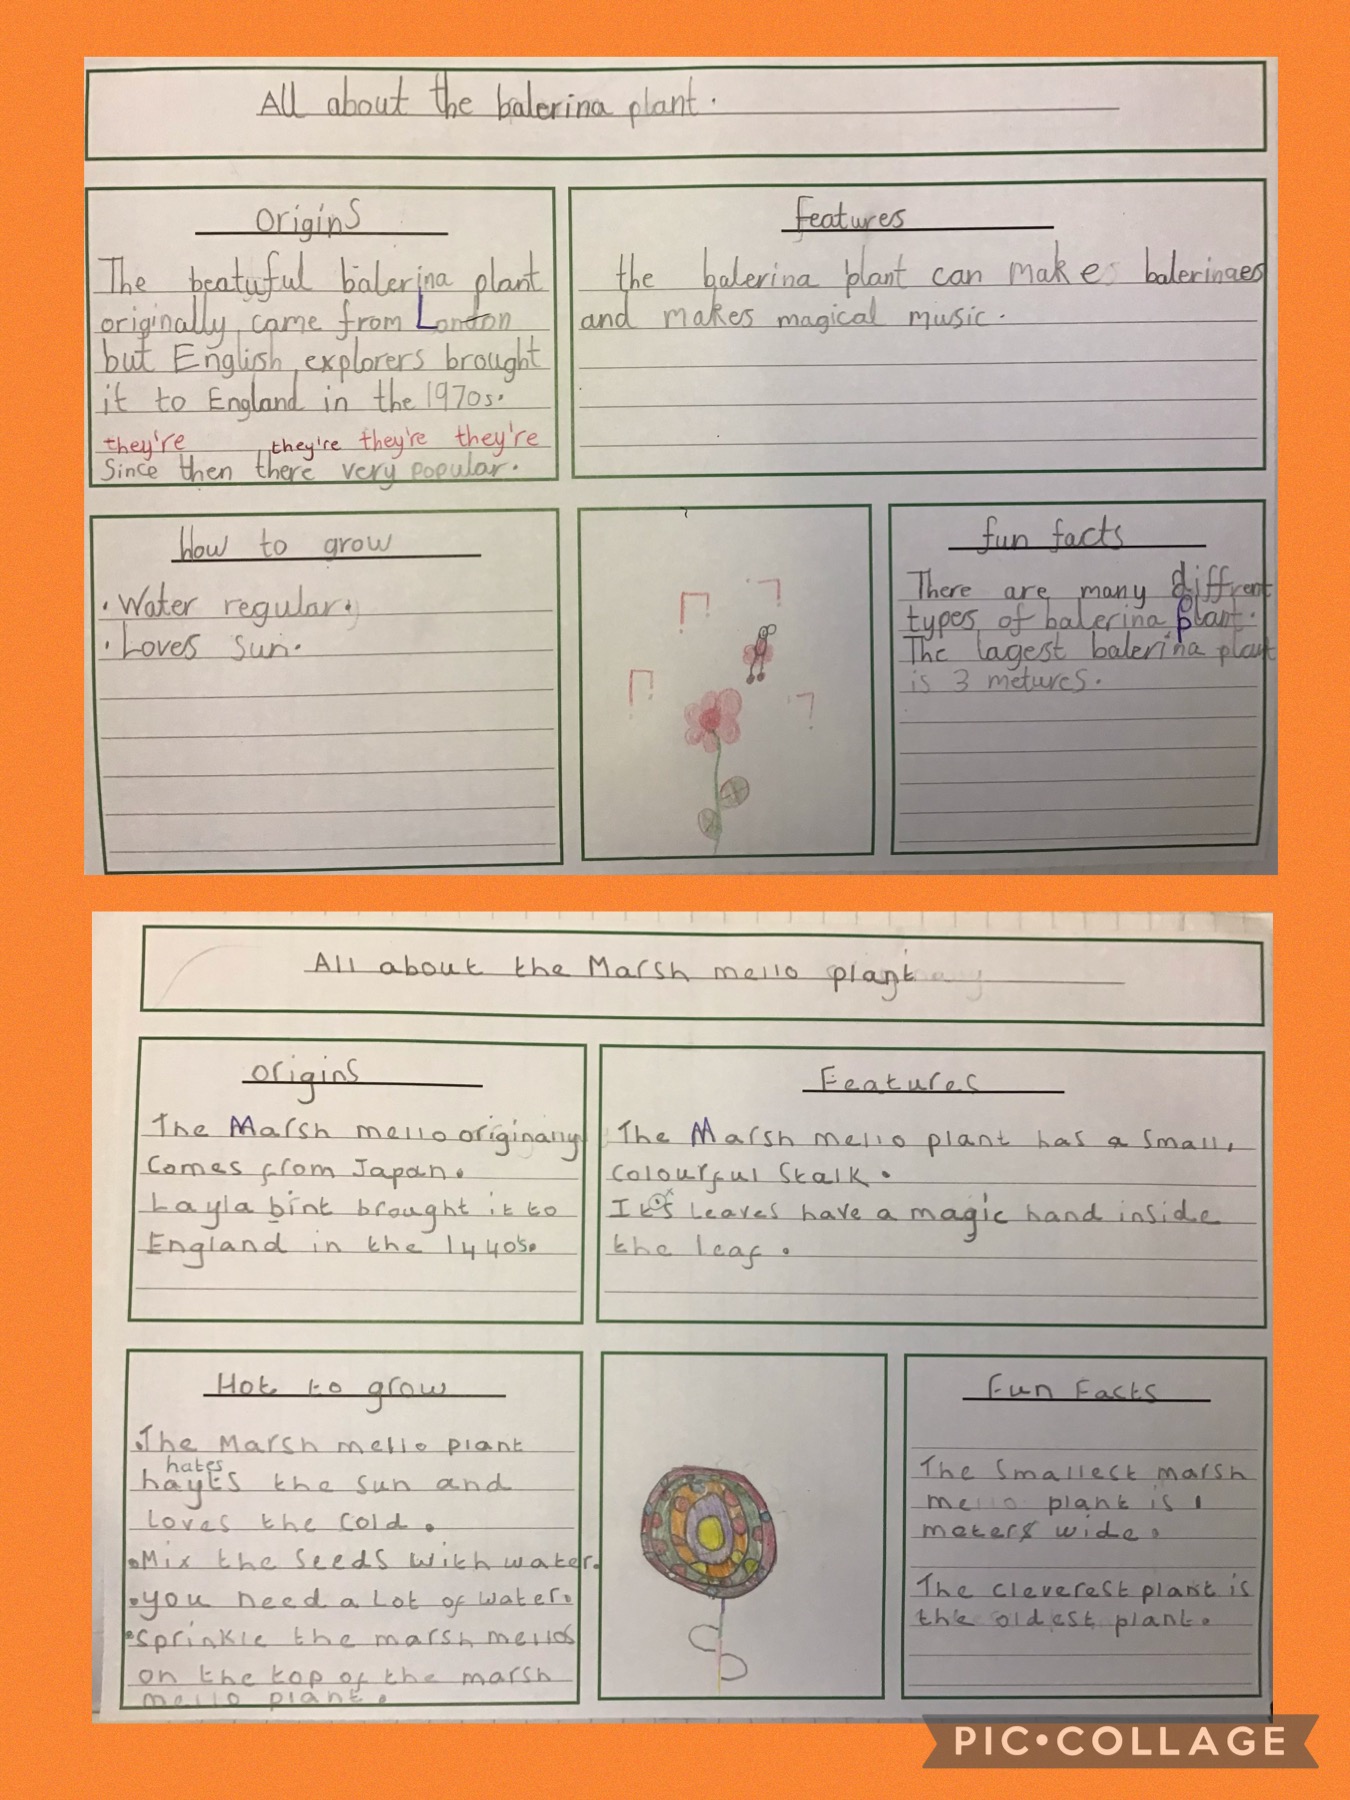 All about the balerina plant.
Origins
The beatuful balerina plant
originally came from London
but English explorers brought
it to England in the 1970s.
they're they're they're they're
Since then there very popular.
features
the balerina plant can make balerinaes
and makes magical music.
How to grow
• Water regular.
• Loves sun.
fun facts
There are many diffrent
types of balerina plant.
The lagest balerina plant
is 3 metures.
All about the Marsh mello plant
origins
The Marsh mello originally
comes from Japan.
Layla bint brought it to
England in the 1440s.
Features
The Marsh mello plant has a small,
colourful stalk.
It's leaves have a magic hand inside
the leaf.
Hot to grow
•The Marsh mello plant
hates
hayts the sun and
loves the cold.
•Mix the seeds with water.
•you need a lot of water.
•sprinkle the marsh mellos
on the top of the marsh
mello plant.
Fun Facts
The smallest marsh
mello plant is 1
meters wide.
The cleverest plant is
the oldest plant.
PIC•COLLAGE